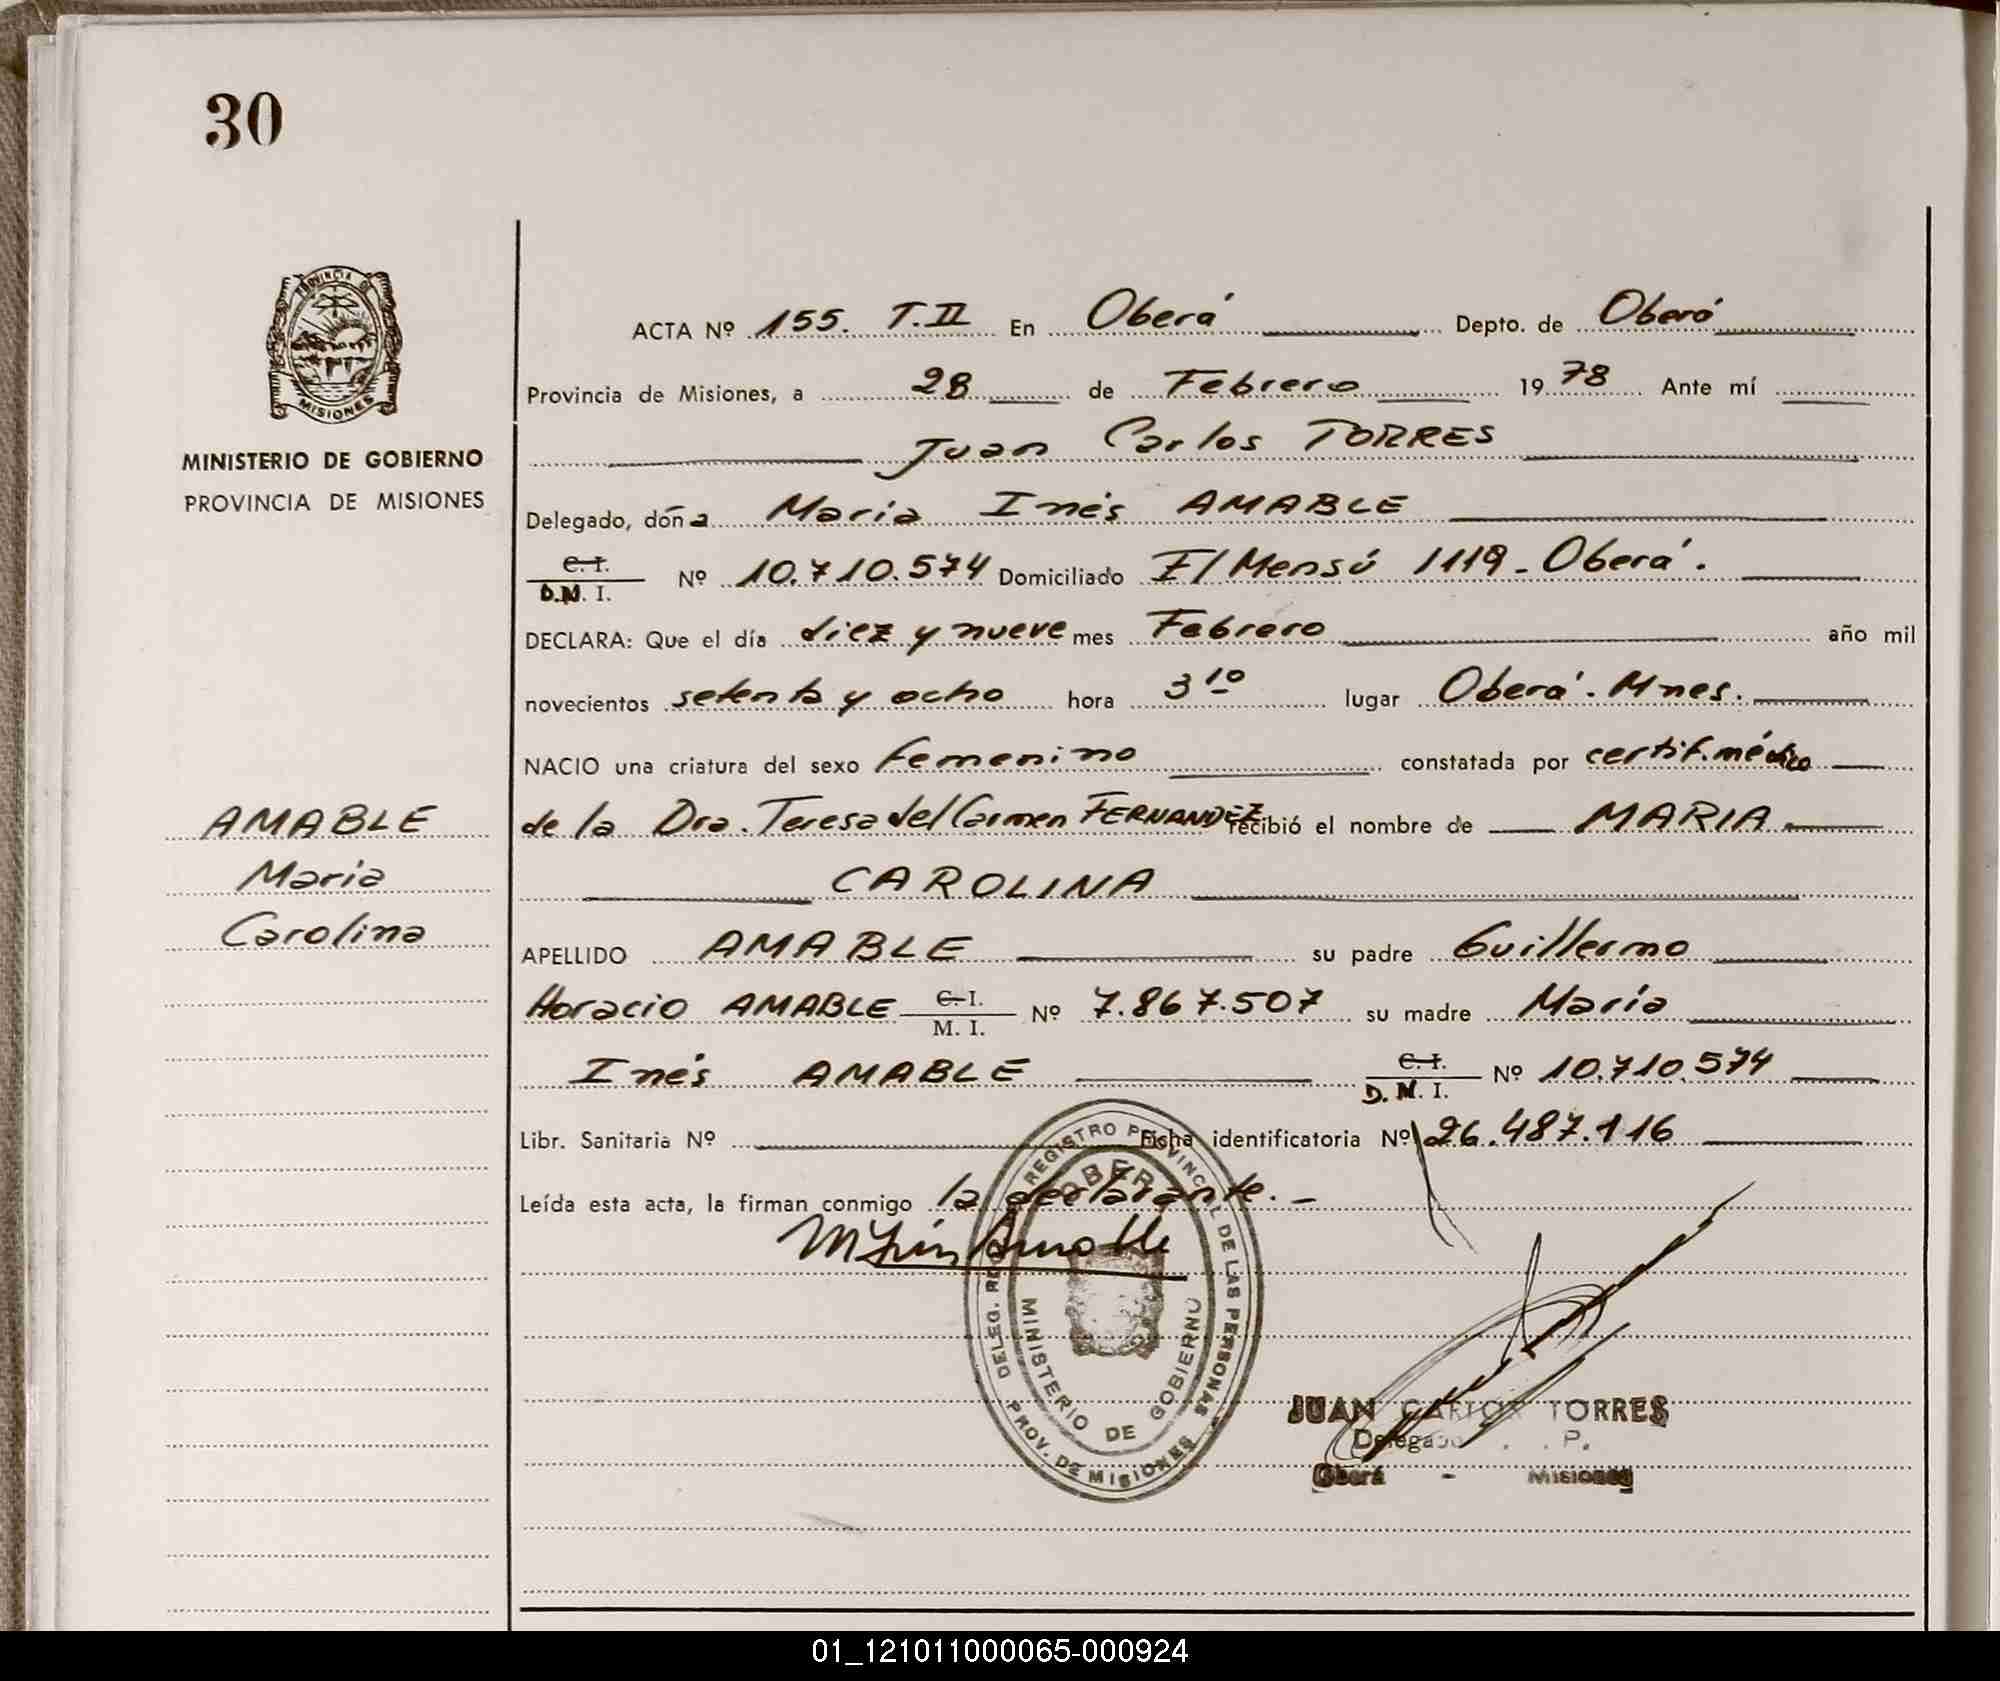 30
PROVINCIA DE
MISIONES
MINISTERIO DE GOBIERNO
PROVINCIA DE MISIONES
ACTA Nº 155. T.II En Oberá Depto. de Oberá
Provincia de Misiones, a 28 de Febrero 1978 Ante mí
Juan Carlos TORRES
Delegado, dóña Maria Inés AMABLE
C. I.
D.M. I. Nº 10.710.574 Domiciliado El Mensú 1119 - Oberá.
DECLARA: Que el día diez y nueve mes Febrero año mil
novecientos setenta y ocho hora 3 10 lugar Oberá. Mnes.
NACIO una criatura del sexo Femenino constatada por certif. médico
de la Dra. Teresa del Carmen FERNANDEZ recibió el nombre de MARIA
CAROLINA
AMABLE
Maria
Carolina
APELLIDO AMABLE su padre Guillermo
Horacio AMABLE C. I.
M. I. Nº 7.867.507 su madre María
Inés AMABLE C. I.
D. M. I. Nº 10.710.574
Libr. Sanitaria Nº Ficha identificatoria Nº 26.487.116
Leída esta acta, la firman conmigo la declarante. –
M Inés Amable
DELEG. REG. REGISTRO PROVINCIAL DE LAS PERSONAS
OBERA
MINISTERIO DE GOBIERNO
PROV. DE MISIONES
JUAN CARLOS TORRES
Delegado P.
Oberá - Misiones
01_121011000065-000924